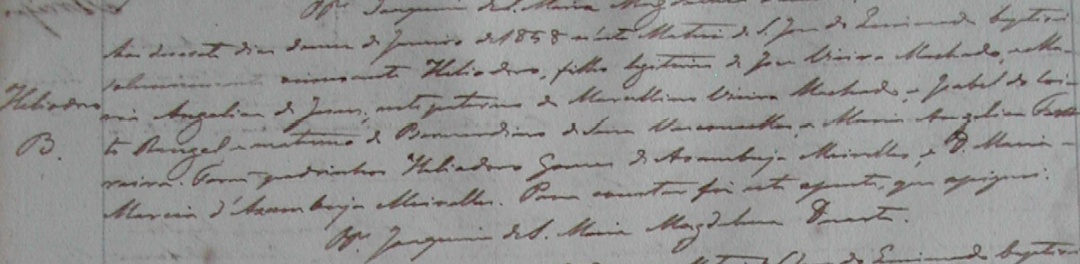 Pe. Joaquim de S. Maria Magdalena
Heliodoro
B.
Aos desoito dias do mes de Janeiro de 1858 n'esta Matriz de S. Jose do baptisei
solemnemente innocente Heliodoro, filho legitimo de Jose Vieira Machado, e Ma-
ria Angelica de Jesus, neto paterno de Marcellino Vieira Machado, e Isabel do
to Rangel e materno de Bernardino de Sena Vasconcellos, e Maria Angelica Fer-
reira. Foram padrinhos Heliodoro Gomes de Asambuja Meirelles, e D. Maria
Marcia d'Asambuja Meirelles. Para constar fiz este assento, que assignei.
Pe. Joaquim de S. Maria Magdalena Duarte.